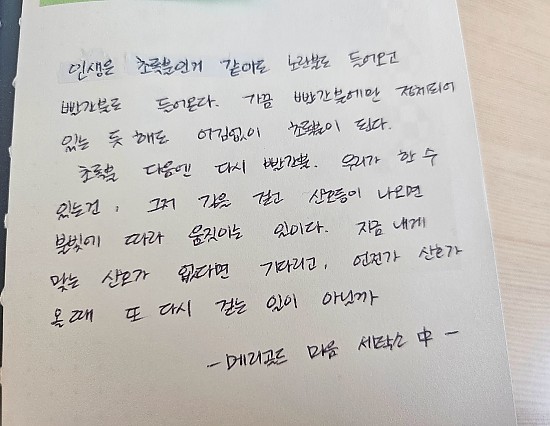 인생은 초록불인거 같아도 노란불도 들어오고
빨간불도 들어온다. 가끔 빨간불에만 정체되어
있는 듯 해도 어김없이 초록불이 된다.
초록불 다음엔 다시 빨간불. 우리가 할 수
있는건, 그저 길을 걷고 신호등이 나오면
불빛에 따라 움직이는 일이다. 지금 내게
맞는 신호가 없다면 기다리고, 언젠가 신호가
올 때 또 다시 걷는 일이 아닐까
- 메리골드 마음 세탁소 中 -